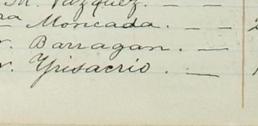 M. Vazquez. —
ra Moncada. — 2
r. Barragan. —
r. Yrisacrio. —